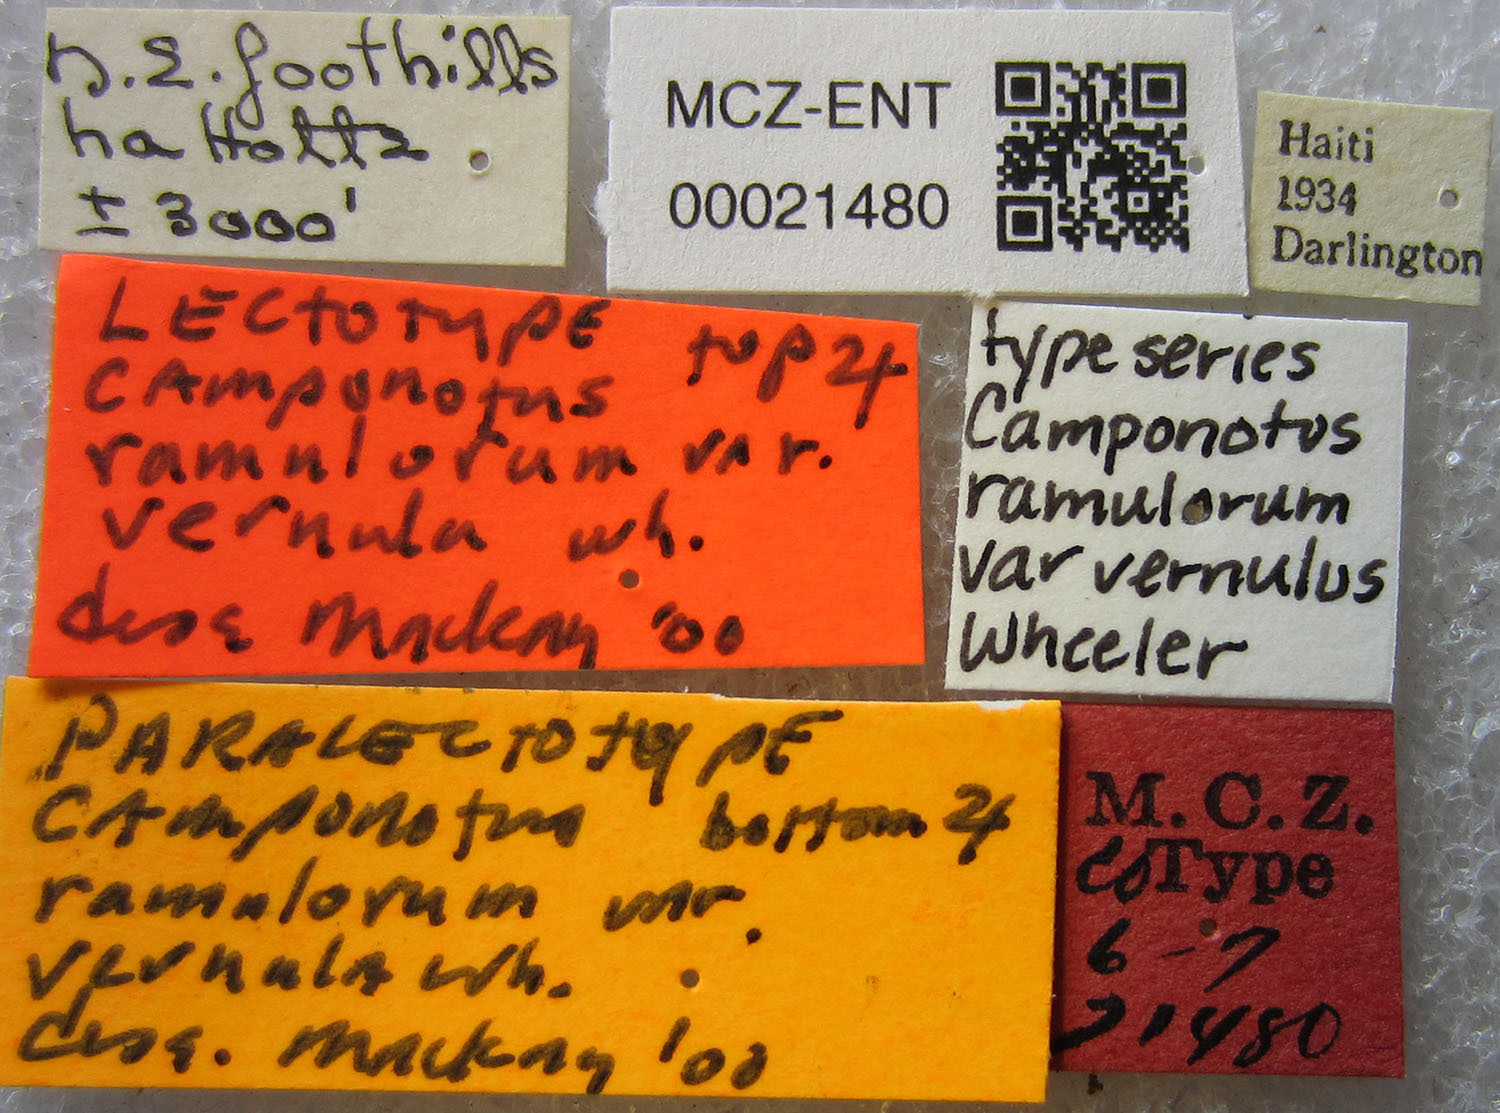 n.E. foothills
ha Hotte
± 3000'
MCZ-ENT
00021480
Haiti
1934
Darlington
LECTOTYPE top 4
CAmponotus
ramulorum var.
vernula wh.
desg. Mackay '00
type series
Camponotus
ramulorum
var vernulus
Wheeler
PARALECTOTYPE
CAmponotus bottom 4
ramulorum var.
vernula wh.
desg. Mackay '00
M.C.Z.
coType
6-7
21480